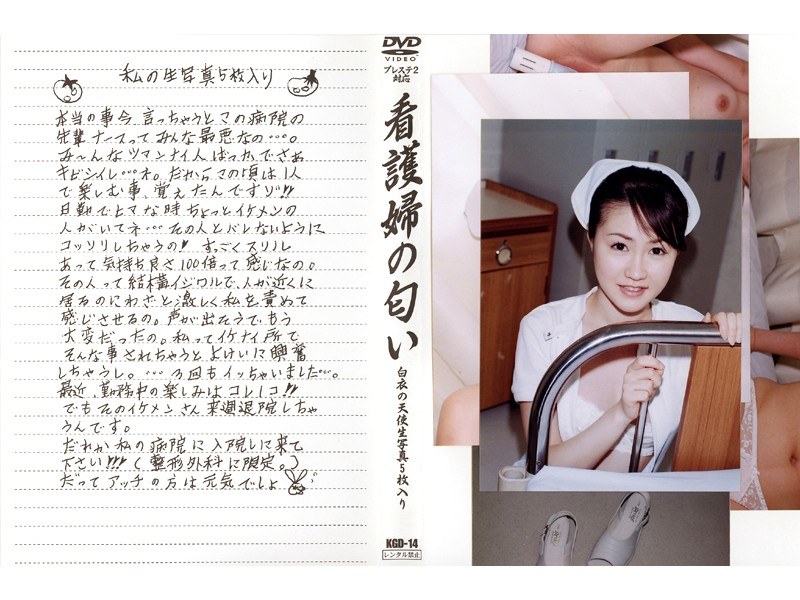 私の生写真5枚入り
本当の事今言っちゃうとこの病院の
先輩ナースってみんな最悪なの…。
み〜んなツマンナイ人ばっかでさぁ
キビシイし…ネ。だからこの頃は1人
で楽しむ事、覚えたんですッ!!
日勤でヒマな時ちょっとイケメンの
人がいてネ…その人とバレないように
コッソリしちゃうの!! すっごくスリル
あって気持ち良さ100倍って感じなの。
その人って結構イジワルで、人が近くに
居るのにわざと激しく私を責めて
感じさせるの。声が出そうでもう
大変だったの。私ってイケナイ所で
そんな事されちゃうとよけいに興奮
しちゃうし。…3回もイッちゃいました…。
最近、勤務中の楽しみはコレ1コ!!
でもそのイケメンさん来週退院しちゃ
うんです。
だれか私の病院に入院しに来て
下さい!!!(整形外科に限定。)
だってアッチの方は元気でしょ
DVD
VIDEO
プレステ2
対応
看護婦の匂い
白衣の天使生写真5枚入り
KGD-14
レンタル禁止